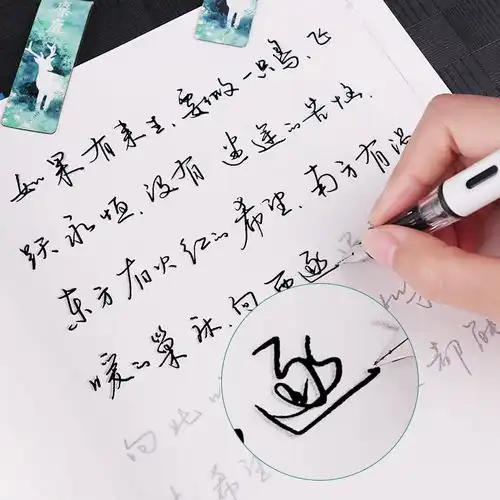 如果有来生,要做一只鸟,飞
跃永恒,没有迷途的苦恼.
东方有火红的希望,南方有温
暖的巢床,向西逐
逐
向
希望